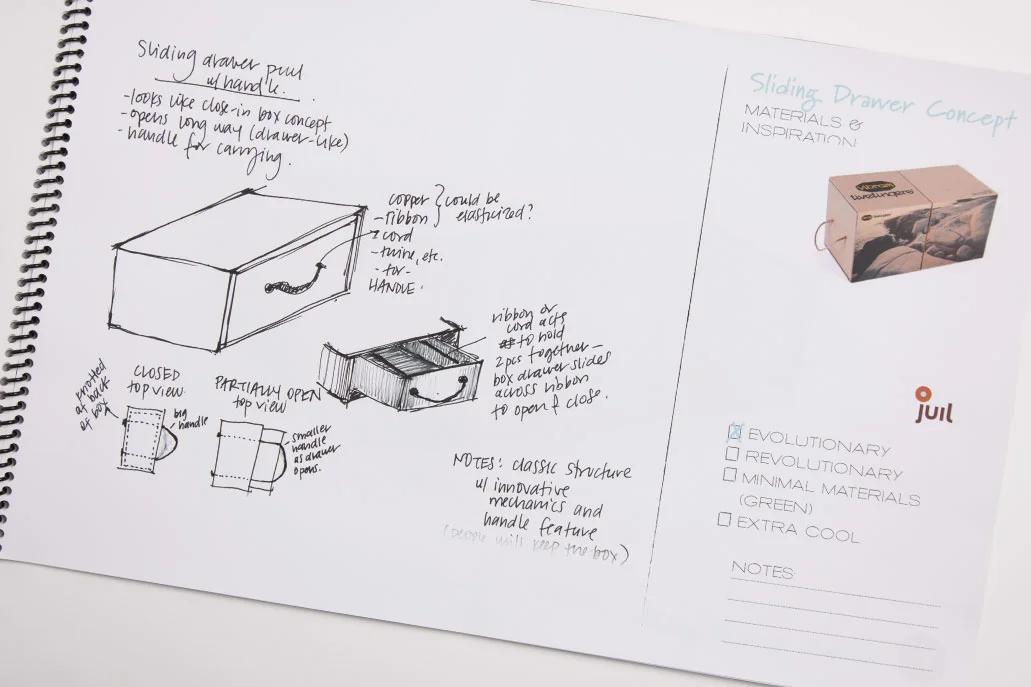 Sliding drawer pull
w/ handle.
-looks like close-in box concept
-opens long way (drawer-like)
-handle for carrying.
copper } could be
-ribbon } elasticized?
-cord
-twine, etc.
-for-
HANDLE.
ribbon or
cord acts
to hold
2pcs together-
box drawer slides
across ribbon
to open & close.
knotted
at back
of box
CLOSED
top view
big
handle
PARTIALLY OPEN
top view
smaller
handle
as drawer
opens.
NOTES: classic structure
w/ innovative
mechanics and
handle feature
(people will keep the box)
Sliding Drawer Concept
MATERIALS &
INSPIRATION
vibram
fivefingers
juil
EVOLUTIONARY
REVOLUTIONARY
MINIMAL MATERIALS
(GREEN)
EXTRA COOL
NOTES: